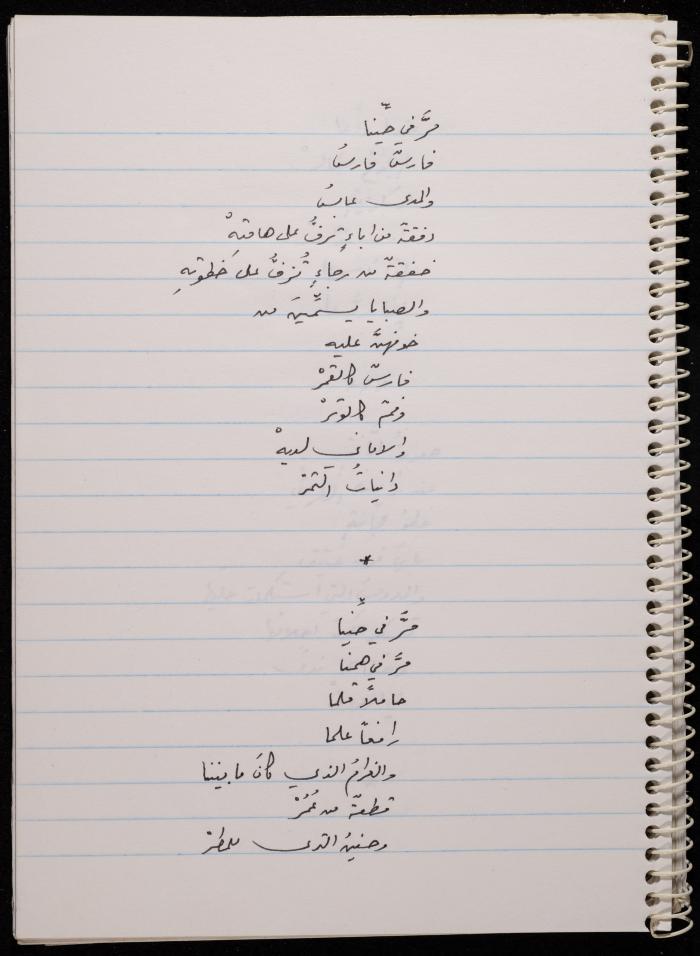 مرَّ في حيِّنا
فارسٌ فارسُ
والمدى عابسُ
دفقةٌ من اباءٍ ترفُّ على هامتهِْ
خفقةٌ من رجاءٍ تُزفُّ على خطوتهِ
والصبايا يسمِّينَ من
خوفهنَّ عليه
فارسٌ كالقمرْ
وفمٌ كالوترْ
والاماني لديهْ
دانياتُ الثمرْ
*
مرَّ في حيِّنا
مرَّ في همنا
حاملاً قلما
رافعاً علما
والغرامُ الذي كانَ ما بيننا
قطعةٌ من عُمُرْ
وحنينُ الثرى للمطرْ